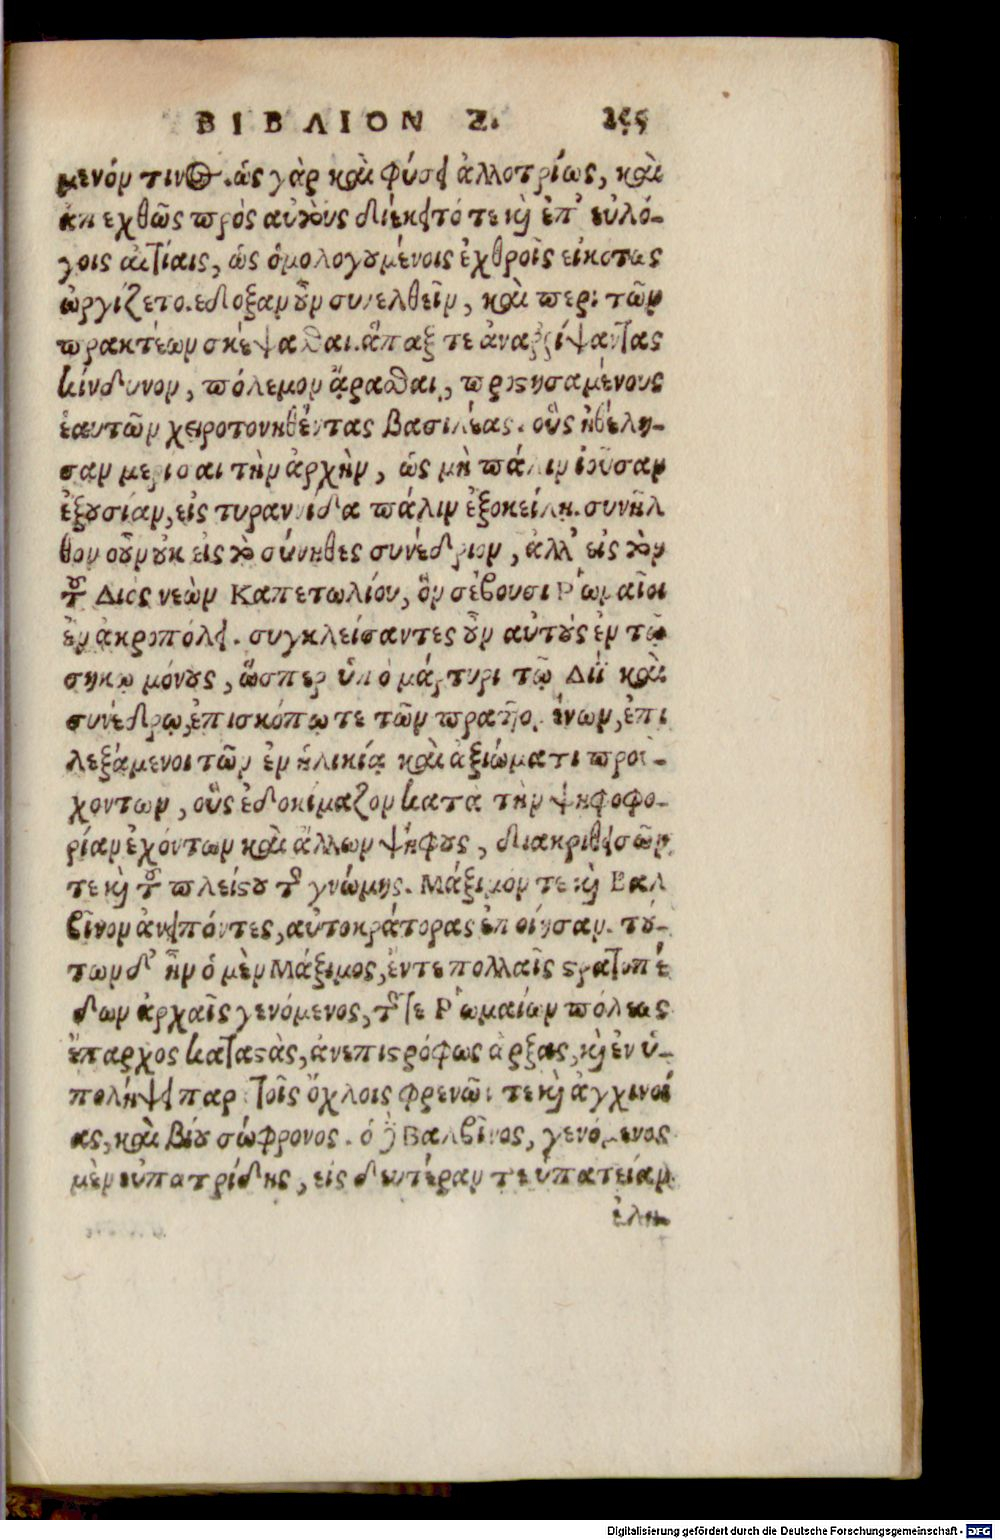 ΒΙΒΛΙΟΝ Ζ.
μενόν τινος. ὡς γὰρ καὶ φύσει ἀλλοτρίως, καὶ
ἀπεχθῶς πρὸς αὐτοὺς διέκειτό τε καὶ ἐπ' εὐλό-
γοις αἰτίαις, ὡς ὁμολογουμένοις ἐχθροῖς εἰκότως
ὠργίζετο. ἔδοξαν οὖν συνελθεῖν, καὶ περὶ τῶν
πρακτέων σκέψασθαι. ἅπαξ τε ἀναῤῥίψαντας
κίνδυνον, πόλεμον ἄρασθαι, προστησαμένους
ἑαυτῶν χειροτονηθέντας βασιλέας. οὓς ἠθέλη-
σαν μερίσαι τὴν ἀρχὴν, ὡς μὴ πάλιν ἰοῦσαν
ἐξουσίαν, εἰς τυραννίδα πάλιν ἐξοκείλῃ. συνῆλ
θον οὖν οὐκ εἰς τὸ σύνηθες συνέδριον, ἀλλ' εἰς τὸν
τοῦ Διὸς νεὼν Καπετωλίου, ὃν σέβουσι Ῥωμαῖοι
ἐν ἀκροπόλει. συγκλείσαντες οὖν αὐτοὺς ἐν τῷ
σηκῷ μόνους, ὥσπερ ὑπὸ μάρτυρι τῷ Διῒ καὶ
συνέδρῳ, ἐπισκόπῳ τε τῶν πραττομένων, ἐπι
λεξάμενοι τῶν ἐν ἡλικίᾳ καὶ ἀξιώματι προϊ-
χόντων, οὓς ἐδοκίμαζον κατὰ τὴν ψηφοφο-
ρίαν ἐχόντων καὶ ἄλλων ψήφους, διακριθεισῶν
τε καὶ τοῦ πλείστου τῆς γνώμης. Μάξιμόν τε καὶ Βαλ
βῖνον ἀνειπόντες, αὐτοκράτορας ἐποίησαν. τού-
των δ' ἦν ὁ μὲν Μάξιμος, ἔν τε πολλαῖς στρατοπέ
δων ἀρχαῖς γενόμενος, τῆς τε Ῥωμαίων πόλεως
ἔπαρχος καταστὰς, ἀνεπιστρόφως ἄρξας, καὶ ἐν ὑ-
πολήψει παρὰ τοῖς ὄχλοις φρενῶν τε καὶ ἀγχινοί
ας, καὶ βίου σώφρονος. ὁ δὲ Βαλβῖνος, γενόμενος
μὲν εὐπατρίδης, εἰς δευτέραν τε ὑπατείαν
ἐλη-
Digitalisierung gefördert durch die Deutsche Forschungsgemeinschaft - DFG